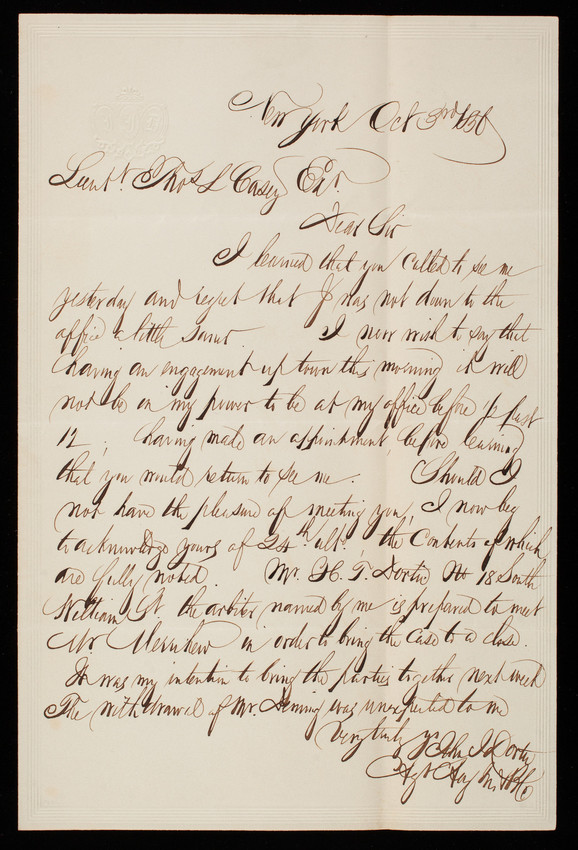 New York Oct 3rd 1856
Lieut. Thos L Casey Esq.
Dear Sir
I learned that you called to see me
yesterday and regret that I was not down to the
office a little sooner. I now wish to say that
having an engagement up town this morning it will
not be in my power to be at my office before ½ past
12, having made an appointment, before learning
that you would return to see me. Should I
not have the pleasure of meeting you, I now beg
to acknowledge yours of 24th ulto, the Contents of which
are fully noted. Mr. H. T. Dortic No 18 South
William St the arbiter named by me is prepared to meet
Mr Merrihew in order to bring the case to a close.
It was my intention to bring the parties together next week
The withdrawal of Mr. Deming was unexpected to me
Very truly yrs John J Dortic
Agt